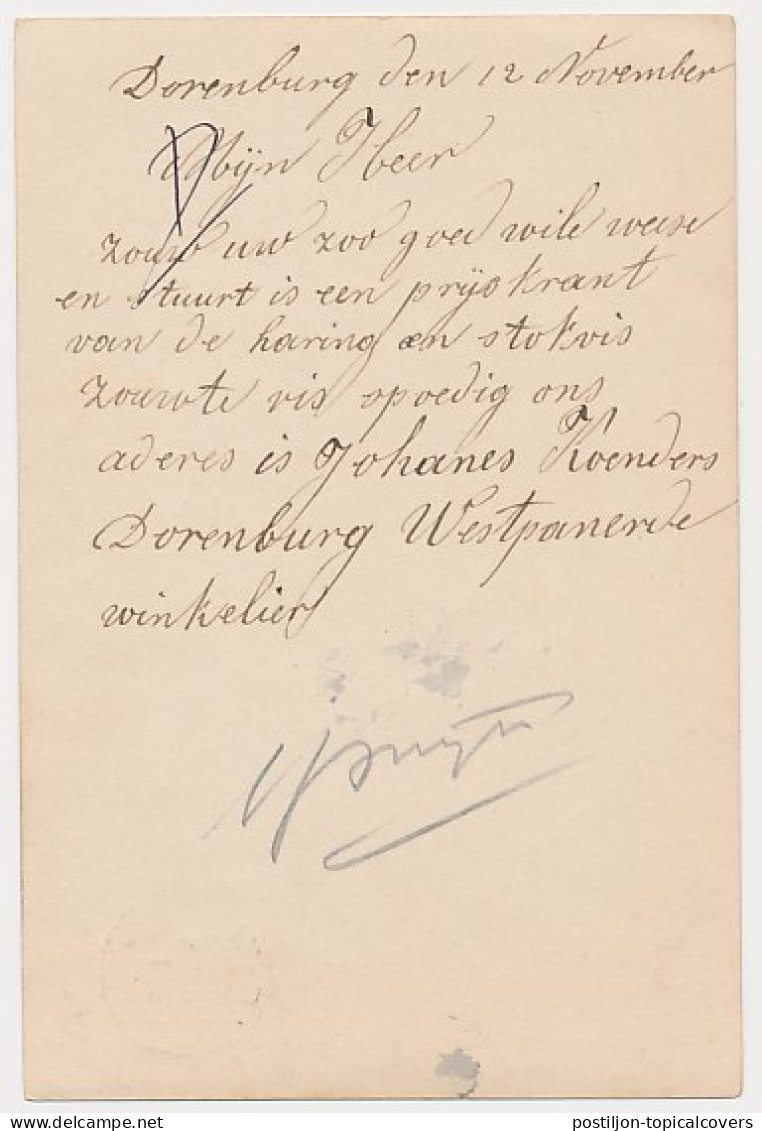 Dorenburg den 12 November
Mijn Heer
zouw uw zoo goed wile weese
en stuurt is een prijskrant
van de haring en stokvis
zouwte vis spoedig ons
aderes is Johanes Koenders
Dorenburg Westpanerde
winkelier
postiljon-topicalcovers